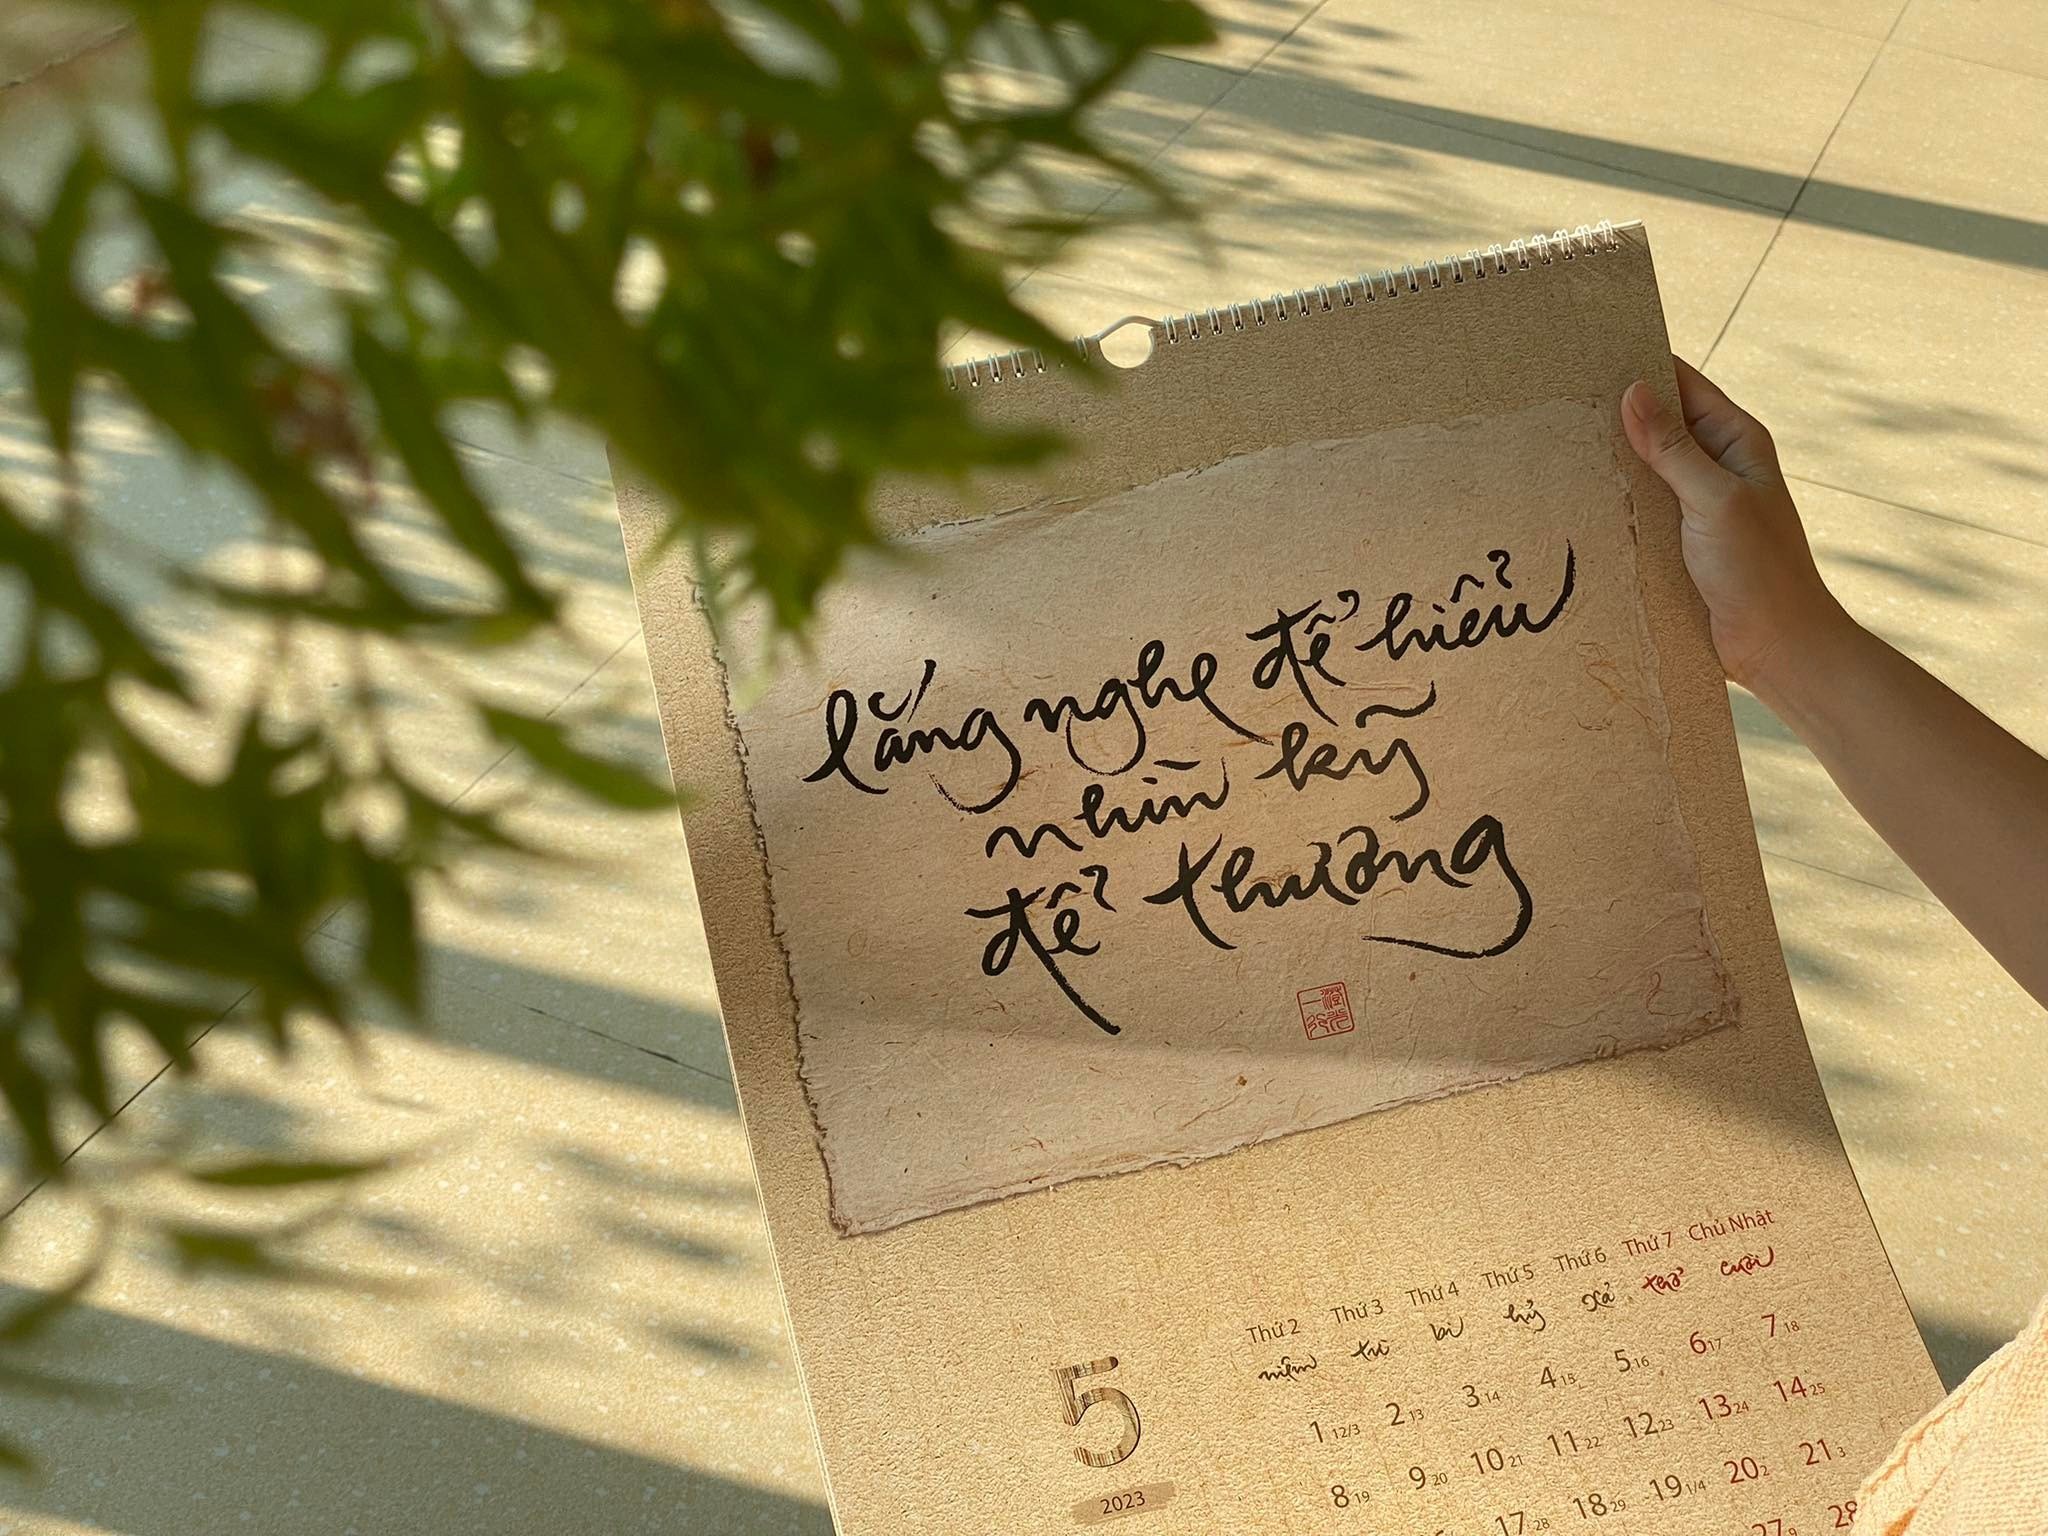 lắng nghe để hiểu
nhìn kỹ
để thương
澄光
一行
5
2023
Thứ 2 Thứ 3 Thứ 4 Thứ 5 Thứ 6 Thứ 7 Chủ Nhật
niệm từ bi hỷ xả thở cười
1 12/3 2 13 3 14 4 15 5 16 6 17 7 18
8 19 9 20 10 21 11 22 12 23 13 24 14 25
17 28 18 29 19 1/4 20 2 21 3
27 9 28